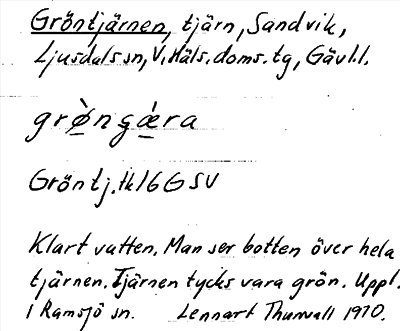 Gröntjärnen, tjärn, Sandvik,
Ljusdals sn, V. Häls. doms. tg, Gävl.l.
grø̀nʂǽra
Gröntj. tk 16G SV
Klart vatten. Man ser botten över hela
tjärnen. Tjärnen tycks vara grön. Uppl.
i Ramsjö sn. Lennart Thunvall 1970.